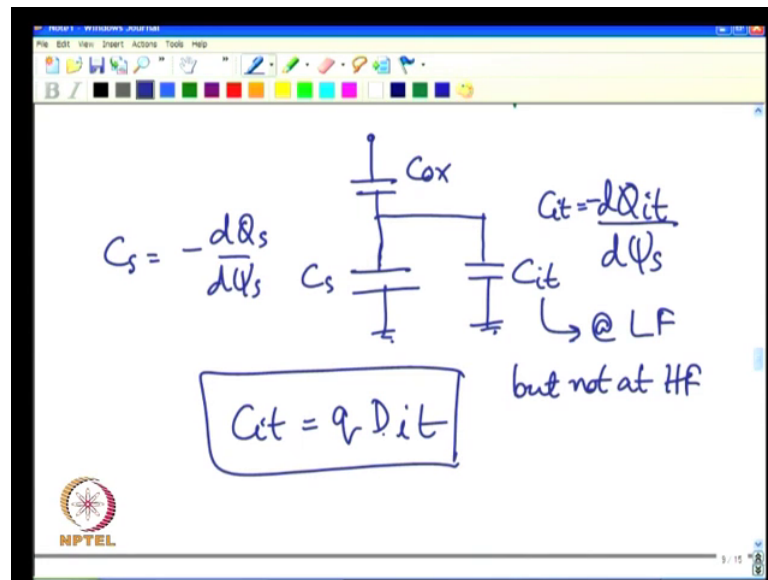 Note1 - Windows Journal
File Edit View Insert Actions Tools Help
B I
Cox
Cs = - dQs / dψs
Cs
Cit
Cit = -dQit / dψs
↳ @ LF
but not at HF
Cit = q Dit
NPTEL
9 / 15